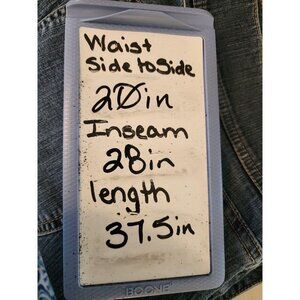 Waist
Side to Side
20in
Inseam
28in
length
37.5in
BOONE